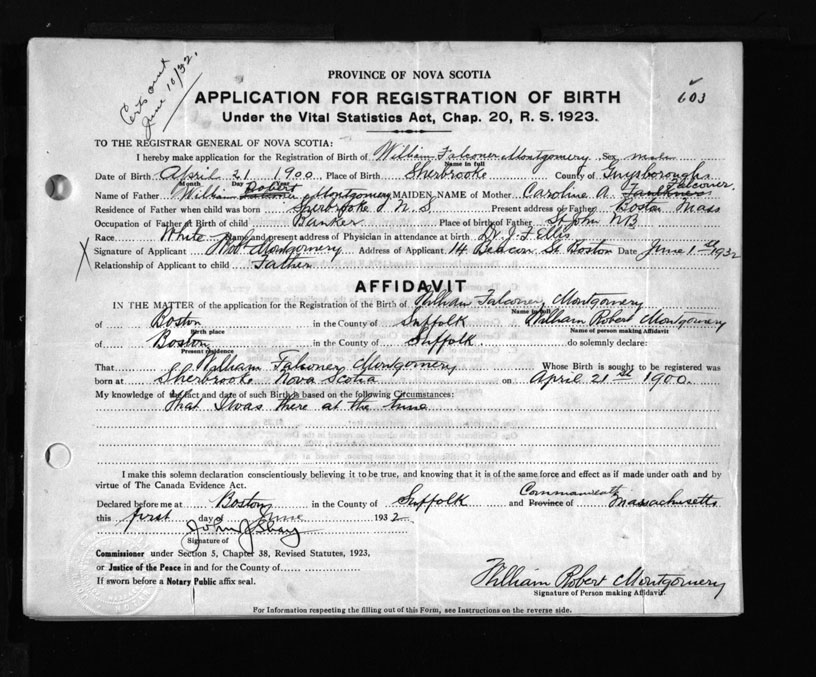 Certs out
June 10/32.
603
PROVINCE OF NOVA SCOTIA
APPLICATION FOR REGISTRATION OF BIRTH
Under the Vital Statistics Act, Chap. 20, R. S. 1923.
TO THE REGISTRAR GENERAL OF NOVA SCOTIA:
I hereby make application for the Registration of Birth of William Falconer Montgomery Sex male
Name in full
Date of Birth April 21 1900. Place of Birth Sherbrooke County of Guysborough
Month Day
Robert Falconer
Name of Father William Montgomery MAIDEN NAME of Mother Caroline A. Faulkner
Residence of Father when child was born Sherbrooke N.S. Present address of Father Boston Mass
Occupation of Father at Birth of child Banker Place of birth of Father St John NB
Race White Name and present address of Physician in attendance at birth Dr. J. F. Ellis
Signature of Applicant Montgomery Address of Applicant 14 Beacon St Boston Date June 1st 1932
Relationship of Applicant to child Father
AFFIDAVIT
IN THE MATTER of the application for the Registration of the Birth of William Falconer Montgomery
Name in full
of Boston in the County of Suffolk William Robert Montgomery
Birth place Name of person making Affidavit
of Boston in the County of Suffolk do solemnly declare:
Present residence
That William Falconer Montgomery Whose Birth is sought to be registered was
born at Sherbrooke Nova Scotia on April 21st 1900.
My knowledge of the fact and date of such Birth is based on the following Circumstances:
That I was there at the time
I make this solemn declaration conscientiously believing it to be true, and knowing that it is of the same force and effect as if made under oath and by
virtue of The Canada Evidence Act.
Commonwealth
Declared before me at Boston in the County of Suffolk and Province of Massachusetts
this first day of June 1932
John J Shay
Signature of
Commissioner under Section 5, Chapter 38, Revised Statutes, 1923,
or Justice of the Peace in and for the County of
If sworn before a Notary Public affix seal.
William Robert Montgomery
Signature of Person making Affidavit.
For Information respecting the filling out of this Form, see Instructions on the reverse side.